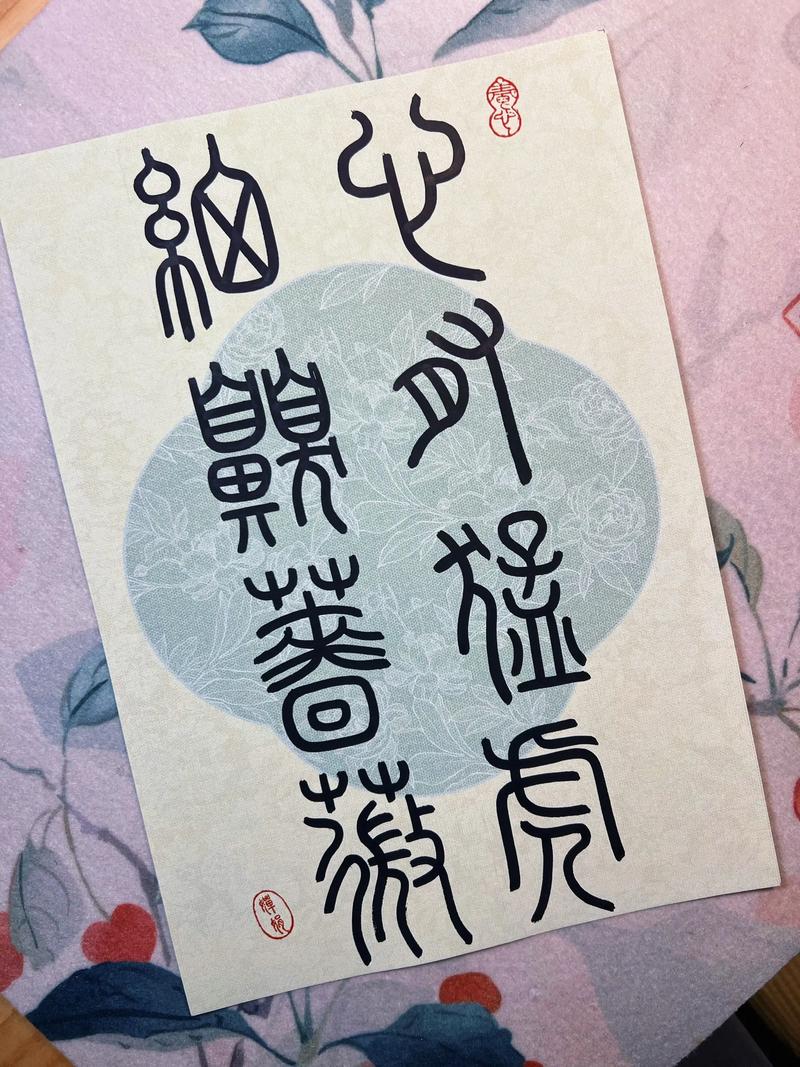 心有猛虎
細齅薔薇